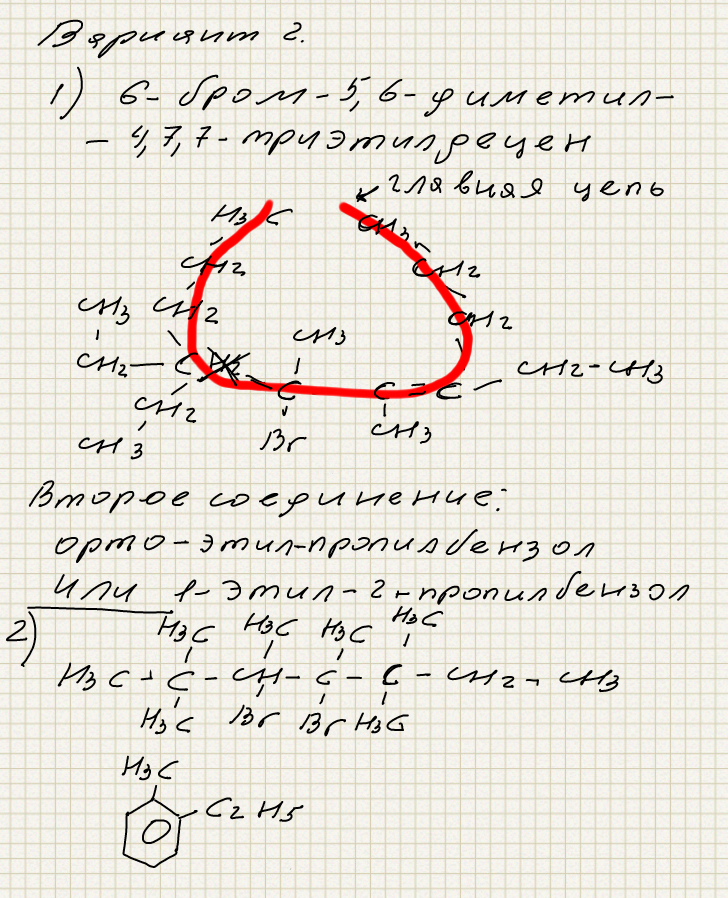 Вариант 2.
1) 6-бром-5,6-диметил-
- 4,7,7-триэтилдецен
главная цепь
H3C CH3
CH2 CH2
CH3 CH2 CH2
CH3
CH2 - C - C - C = C - CH2-CH3
CH2
CH3 Br CH3
Второе соединение:
орто-этил-пропилбензол
или 1-этил-2-пропилбензол
2)
H3C H3C H3C H3C
H3C - C - CH - C - C - CH2 - CH3
H3C Br Br H3C
H3C
C2H5